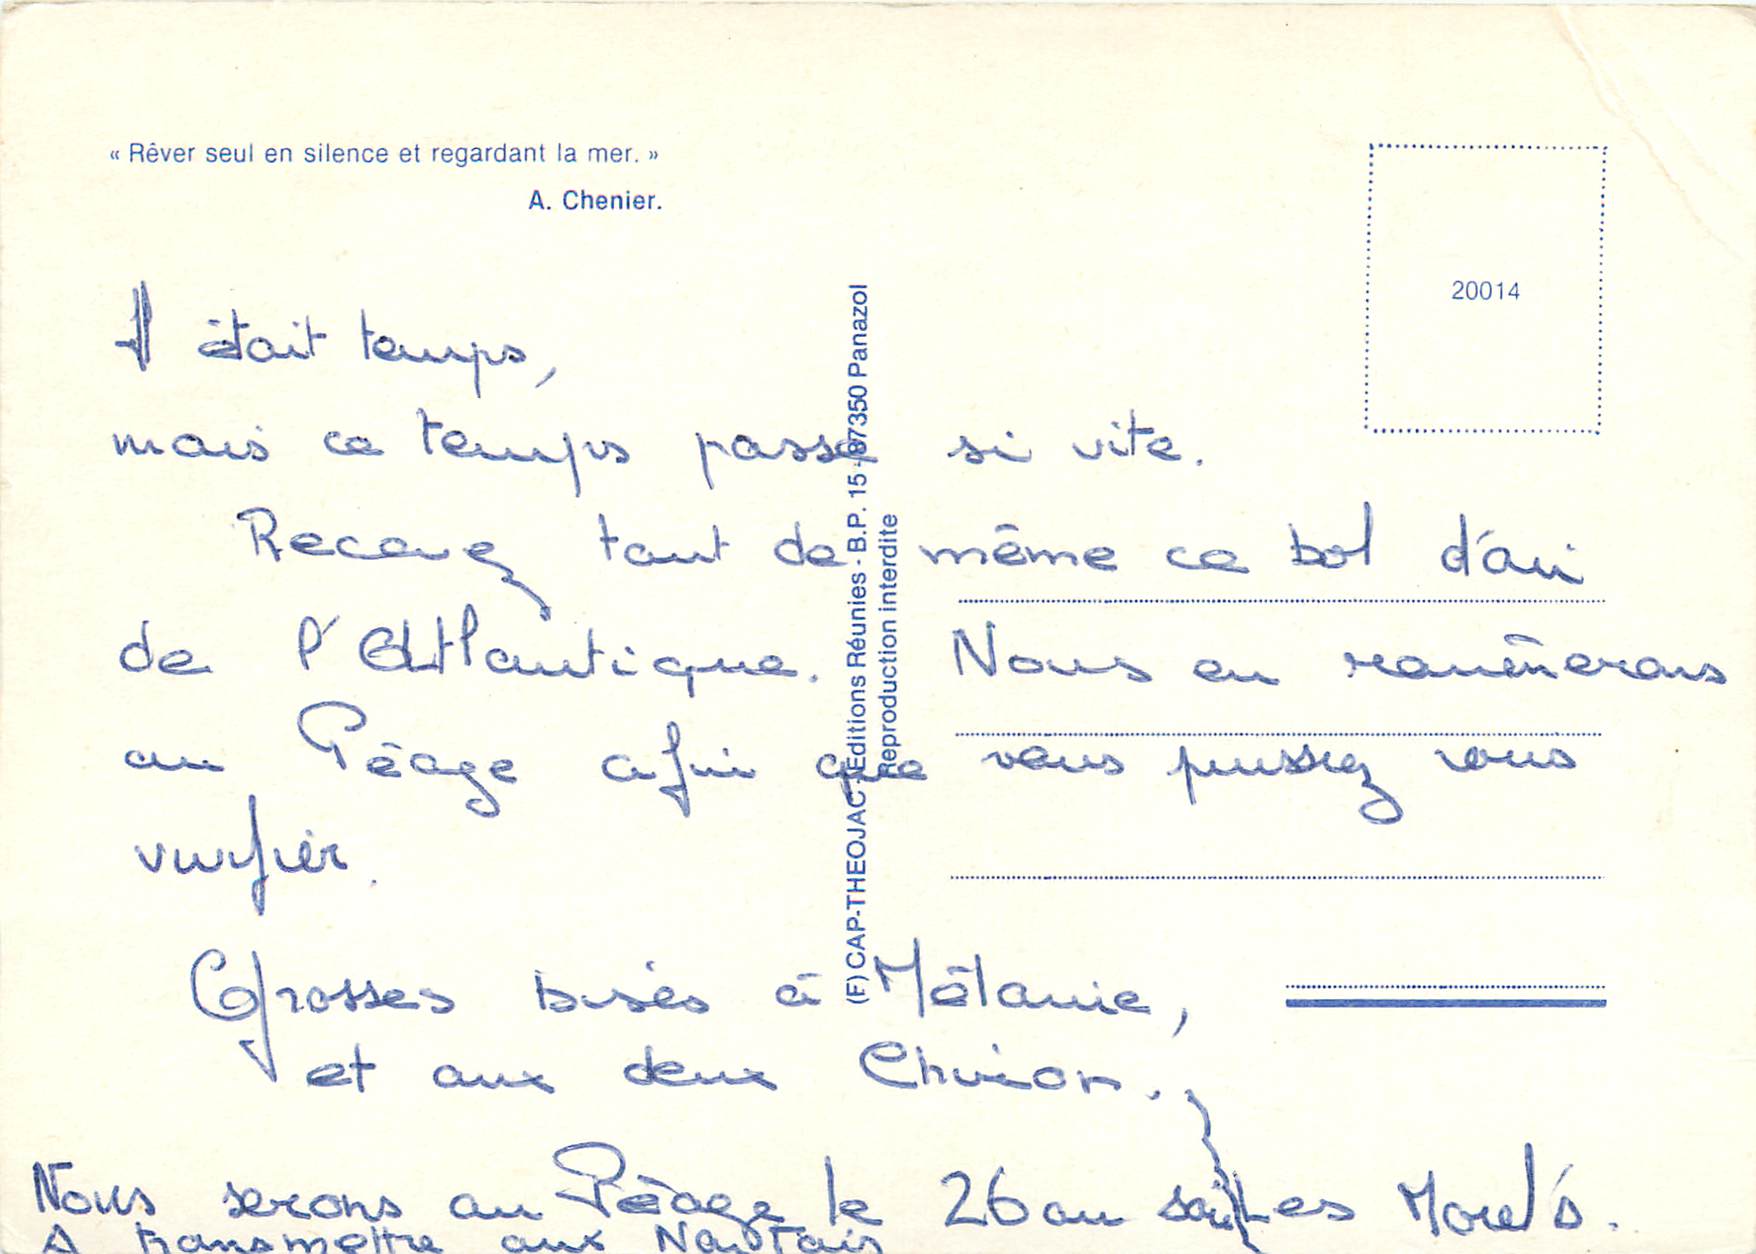 « Rêver seul en silence et regardant la mer. »
A. Chenier.
20014
Il était temps,
mais ce temps passe si vite.
Recevez tout de même ce bol d'air
de l'Atlantique. Nous en ramènerons
au Péage afin que vous puissiez vous
vivifier.
Grosses bises à Mélanie,
et aux deux
Nous serons au Péage le 26 au soir Les Morel's.
A transmettre aux
(F) CAP-THEOJAC - Editions Réunies - B.P. 15 - 87350 Panazol
Reproduction interdite